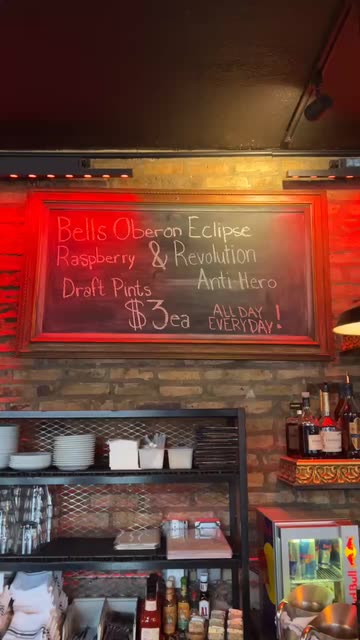 Bells Oberon Eclipse
Raspberry & Revolution
Draft Pints Anti Hero
$3ea ALL DAY EVERYDAY!
Red Bull